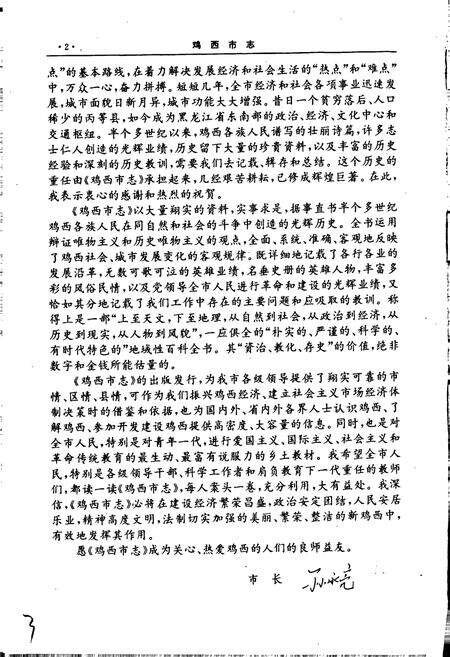 ·2·
鸡西市志
点”的基本路线,在着力解决发展经济和社会生活的“热点”和“难点”
中,万众一心,奋力拼搏。短短几年,全市经济和社会各项事业迅速发
展,城市面貌日新月异,城市功能大大增强。昔日一个贫穷落后、人口
稀少的丙等县,如今成为黑龙江省东南部的政治、经济、文化中心和
交通枢纽。半个多世纪以来,鸡西各族人民谱写的壮丽诗篇,许多志
士仁人创造的光辉业绩,历史留下大量的珍贵资料,以及丰富的历史
经验和深刻的历史教训,需要我们去记载、辑存和总结。这个历史的
重任由《鸡西市志》承担起来,几经艰苦耕耘,已修成辉煌巨著。在此,
我表示衷心的感谢和热烈的祝贺。
《鸡西市志》以大量翔实的资料,实事求是,据事直书半个多世纪
鸡西各族人民在同自然和社会的斗争中创造的光辉历史。全书运用
辩证唯物主义和历史唯物主义的观点,全面、系统、准确、客观地反映
了鸡西社会、城市发展变化的客观规律。既详细地记载了各行各业的
发展沿革,无数可歌可泣的英雄业绩,名垂史册的英雄人物,丰富多
彩的风俗民情,以及党领导全市人民进行革命和建设的光辉业绩,又
恰如其分地记载了我们工作中存在的主要问题和应吸取的教训。称
得上是一部“上至天文,下至地理,从自然到社会,从政治到经济,从
历史到现实,从人物到风貌”,一应俱全的“朴实的、严谨的、科学的、
有时代特色的”地域性百科全书。其“资治、教化、存史”的价值,绝非
数字和金钱所能估量的。
《鸡西市志》的出版发行,为我市各级领导提供了翔实可靠的市
情、区情、县情,可作为我们振兴鸡西经济、建立社会主义市场经济体
制决策时的借鉴和依据,也为国内外、省内外各界人士认识鸡西、了
解鸡西、参加开发建设鸡西提供高密度、大容量的信息。同时,也是对
全市人民,特别是对青年一代,进行爱国主义、国际主义、社会主义和
革命传统教育的最生动、最富有说服力的乡土教材。我希望全市人
民,特别是各级领导干部、科学工作者和肩负教育下一代重任的教师
们,都读一读《鸡西市志》,每人案头一卷,充分利用,大有益处。我深
信,《鸡西市志》必将在建设经济繁荣昌盛,政治安定团结,人民安居
乐业,精神高度文明,法制切实加强的美丽、繁荣、整洁的新鸡西中,
有效地发挥其作用。
愿《鸡西市志》成为关心、热爱鸡西的人们的良师益友。
市长
3